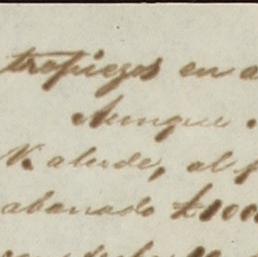 tropiezos en a
Aunque
Valerde, al f
abonado £1000